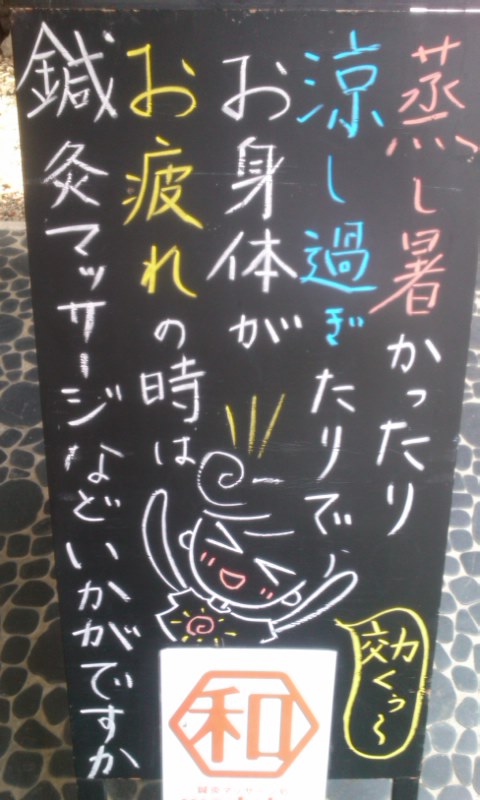 蒸し暑かったり
涼し過ぎたりで、
お身体が
お疲れの時は
鍼灸マッサージなどいかがですか
効くぅ～
和